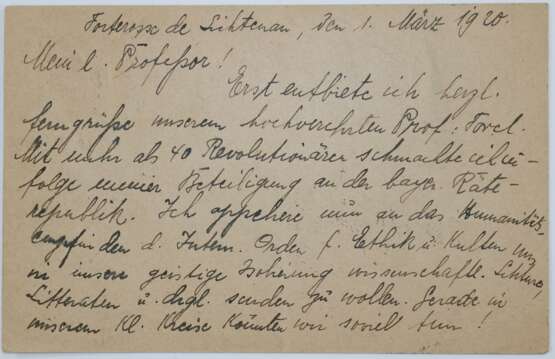 Forteresse de Lichtenau, den 1. März 1920.
Mein l. Professor!
Erst entbiete ich herzl.
Ferngrüße unserem hochverehrten Prof: Forel.
Mit mehr als 40 Revolutionären schmachte ich in-
folge meiner Beteiligung an der bayer. Räte-
republik. Ich appeliere nun an das Humanitäts-
empfinden d. Intern. Orden f. Ethik u. Kultur uns
in unsere geistige Isolierung wissenschaftl.
Litteraten u. drgl. senden zu wollen. Gerade in
unserem kl. Kreise könnten wir soviel tun!